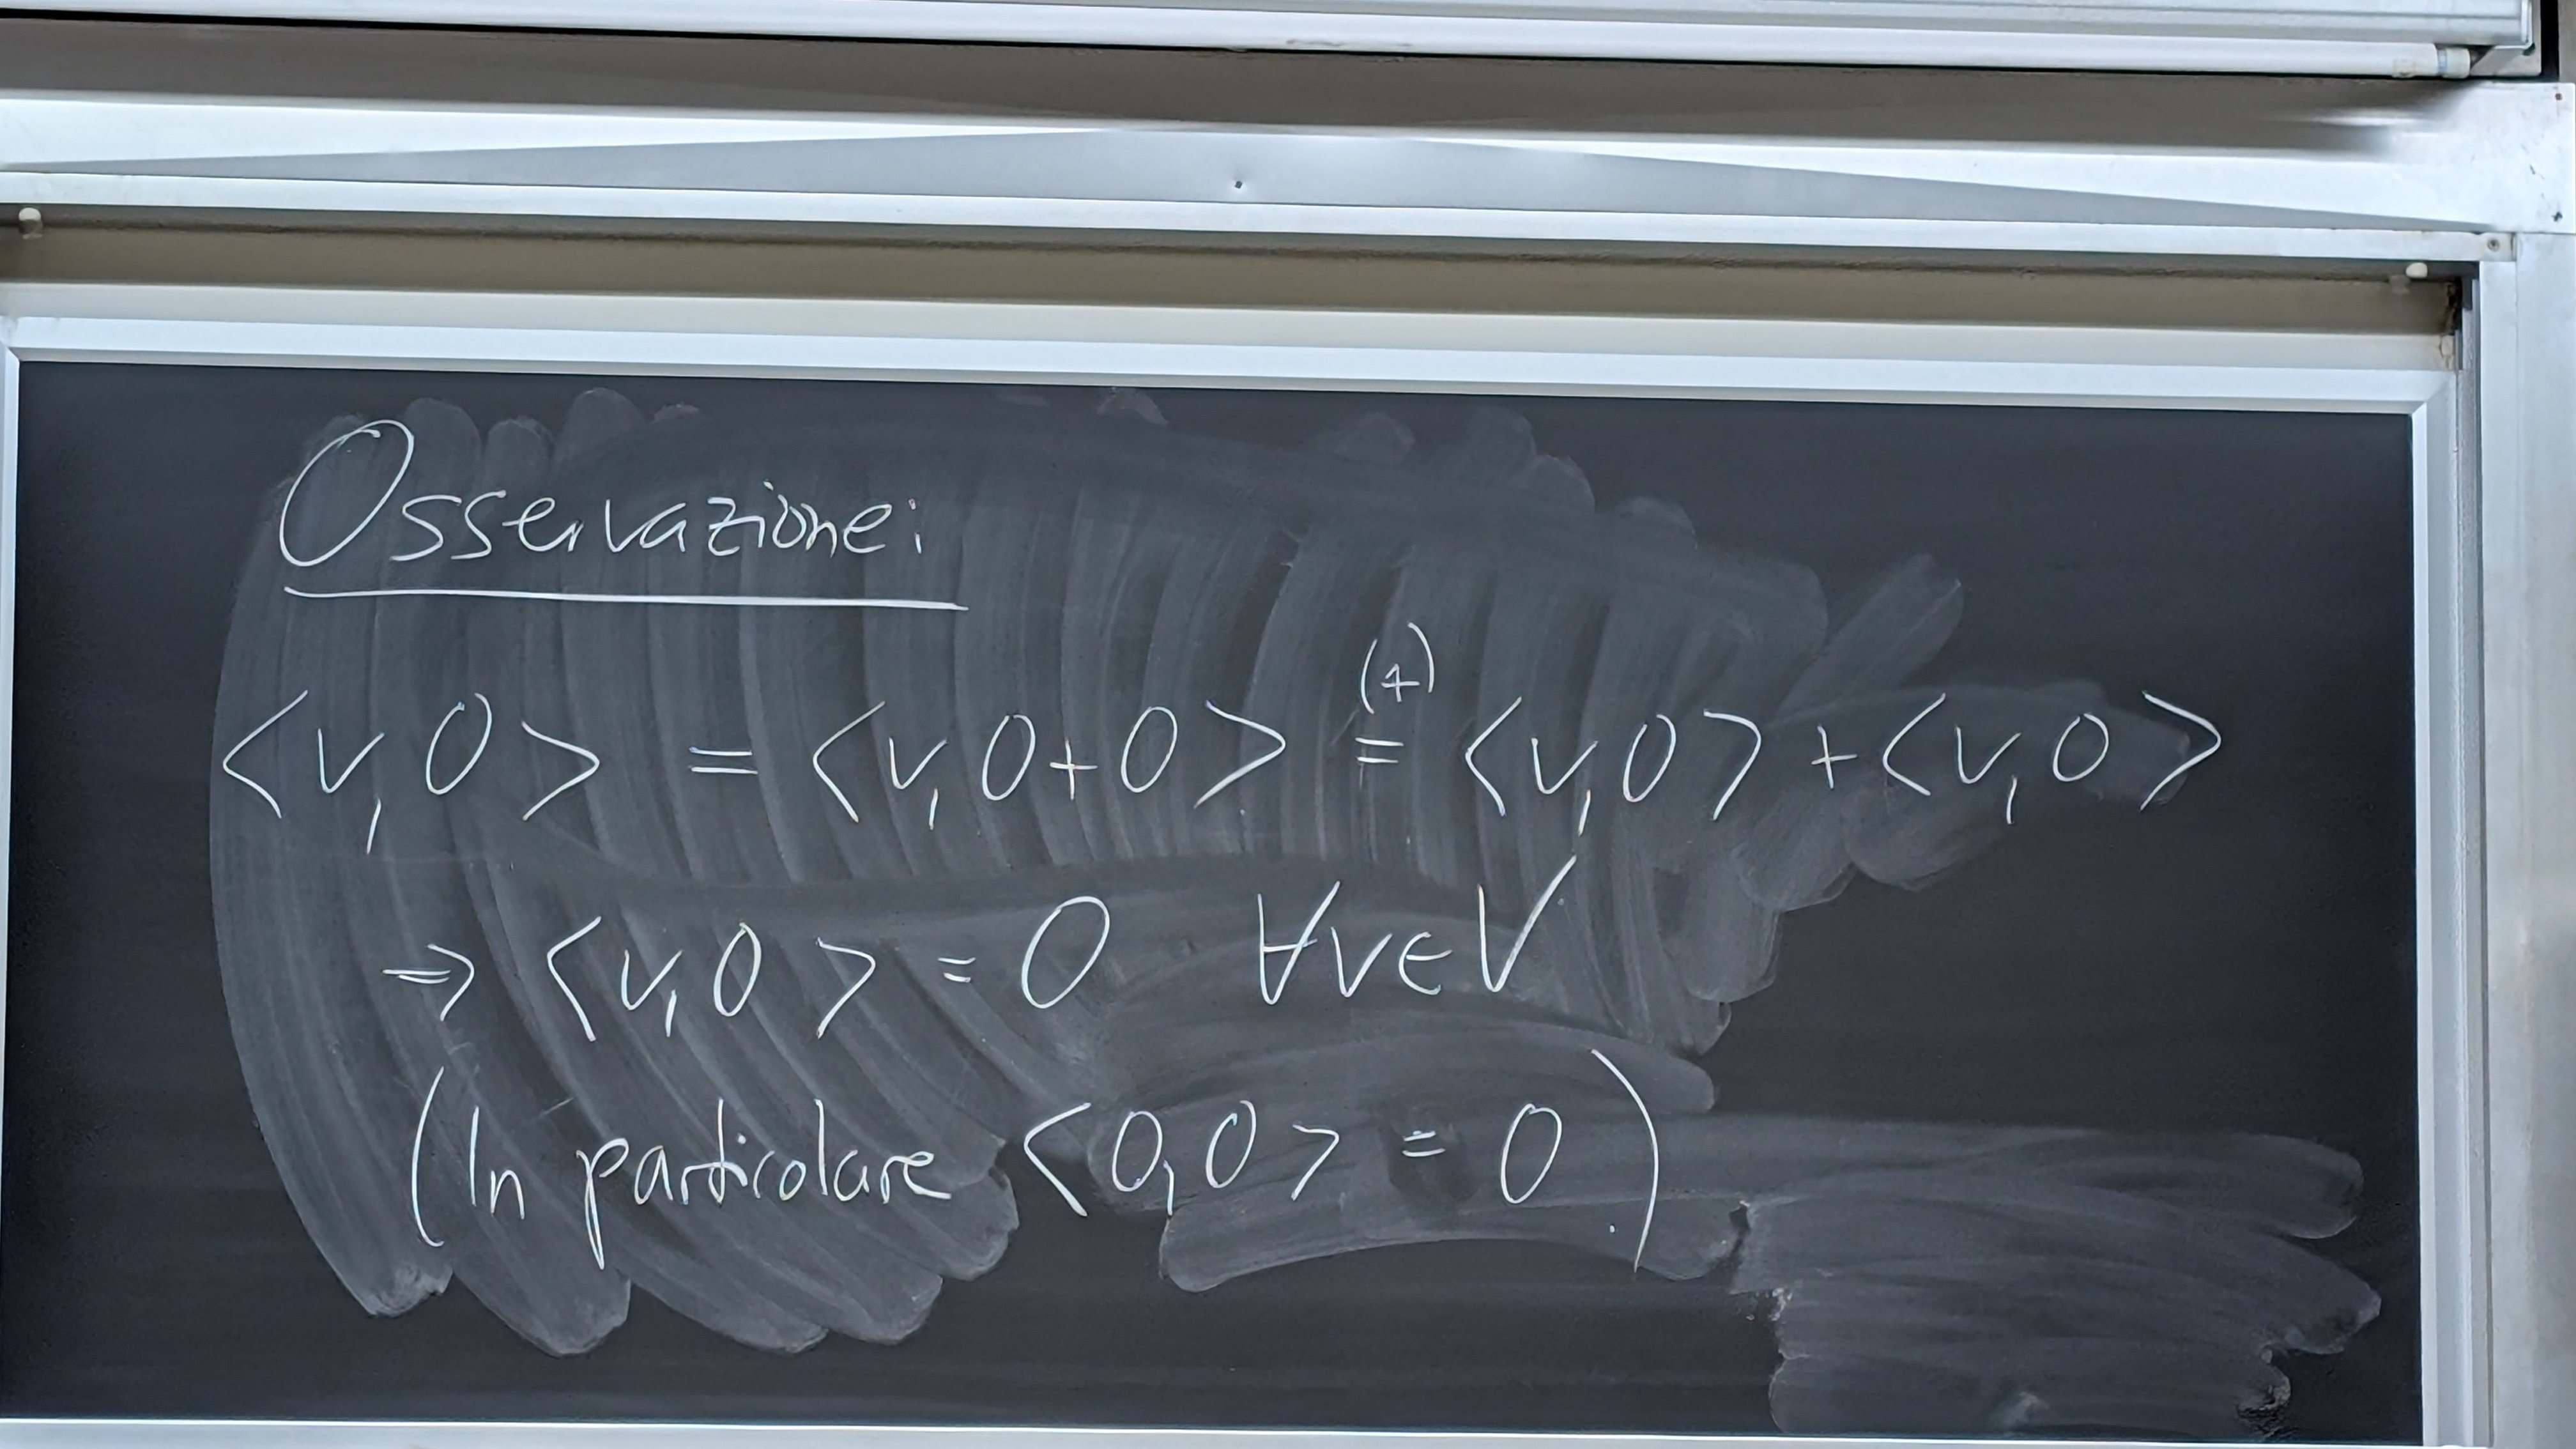 Osservazione:
<v,0> = <v,0+0> (+)= <v,0> + <v,0>
⇒ <v,0> = 0 ∀v∈V
(In particolare <0,0> = 0.)